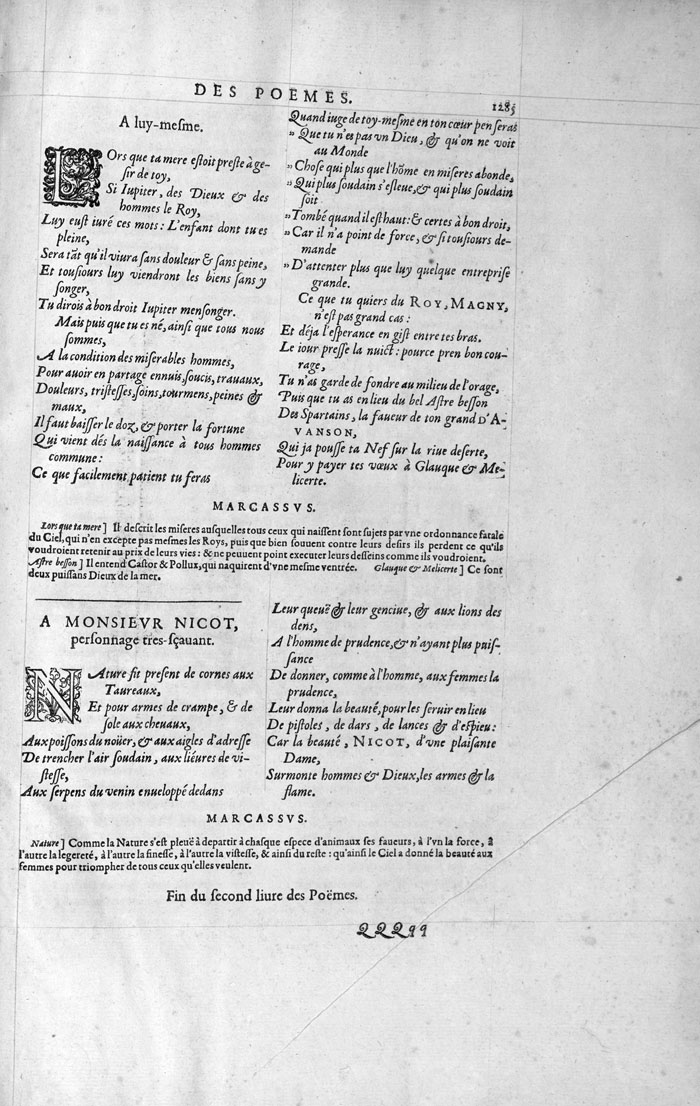 DES POEMES.
1285
A luy-meſme.
LOrs que ta mere eſtoit preſte à ge-
ſir de toy,
Si Iupiter, des Dieux & des
hommes le Roy,
Luy euſt iuré ces mots: L'enfant dont tu es
pleine,
Sera tāt qu'il viura ſans douleur & ſans peine,
Et touſiours luy viendront les biens ſans y
ſonger,
Tu dirois à bon droit Iupiter menſonger.
Mais puis que tu es né, ainſi que tous nous
ſommes,
A la condition des miſerables hommes,
Pour auoir en partage ennuis, ſoucis, trauaux,
Douleurs, triſteſſes, ſoins, tourmens, peines &
maux,
Il faut baiſſer le doz, & porter la fortune
Qui vient dés la naiſſance à tous hommes
commune:
Ce que facilement patient tu feras
Quand iuge de toy-meſme en ton cœur penſeras
„ Que tu n'es pas vn Dieu, & qu'on ne voit
au Monde
„ Choſe qui plus que l'hōme en miſeres abonde,
„ Qui plus ſoudain s'eſleue, & qui plus ſoudain
ſoit
„ Tombé quand il eſt haut: & certes à bon droit,
„ Car il n'a point de force, & ſi touſiours de-
mande
„ D'attenter plus que luy quelque entrepriſe
grande.
Ce que tu quiers du ROY, MAGNY,
n'eſt pas grand cas:
Et déja l'eſperance en giſt entre tes bras.
Le iour preſſe la nuict: pource pren bon cou-
rage,
Tu n'as garde de fondre au milieu de l'orage,
Puis que tu as en lieu du bel Aſtre beſſon
Des Spartains, la faueur de ton grand D'A-
VANSON,
Qui ja pouſſe ta Nef ſur la riue deſerte,
Pour y payer tes vœux à Glauque & Me-
licerte.
MARCASSVS.
Lors que ta mere] Il deſcrit les miſeres auſquelles tous ceux qui naiſſent ſont ſujets par vne ordonnance fatale
du Ciel, qui n'en excepte pas meſmes les Roys, puis que bien ſouuent contre leurs deſirs ils perdent ce qu'ils
voudroient retenir au prix de leurs vies: & ne peuuent point executer leurs deſſeins comme ils voudroient.
Aſtre beſſon] Il entend Caſtor & Pollux, qui naquirent d'vne meſme ventrée. Glauque & Melicerte] Ce ſont
deux puiſſans Dieux de la mer.
A MONSIEVR NICOT,
perſonnage tres-ſçauant.
NAture fit preſent de cornes aux
Taureaux,
Et pour armes de crampe, & de
ſole aux cheuaux,
Aux poiſſons du noüer, & aux aigles d'adreſſe
De trencher l'air ſoudain, aux liéures de vi-
ſteſſe,
Aux ſerpens du venin enueloppé dedans
Leur queuë & leur genciue, & aux lions des
dens,
A l'homme de prudence, & n'ayant plus puiſ-
ſance
De donner, comme à l'homme, aux femmes la
prudence,
Leur donna la beauté, pour les ſeruir en lieu
De piſtoles, de dars, de lances & d'eſpieu:
Car la beauté, NICOT, d'vne plaiſante
Dame,
Surmonte hommes & Dieux, les armes & la
flame.
MARCASSVS.
Nature] Comme la Nature s'eſt pleuë à departir à chaſque eſpece d'animaux ſes faueurs, à l'vn la force, à
l'autre la legereté, à l'autre la fineſſe, à l'autre la viſteſſe, & ainſi du reſte: qu'ainſi le Ciel a donné la beauté aux
femmes pour triompher de tous ceux qu'elles veulent.
Fin du ſecond liure des Poëmes.
QQQqq